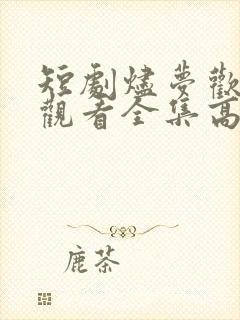 短劇燼夢歡
觀看全集高
鹿茶